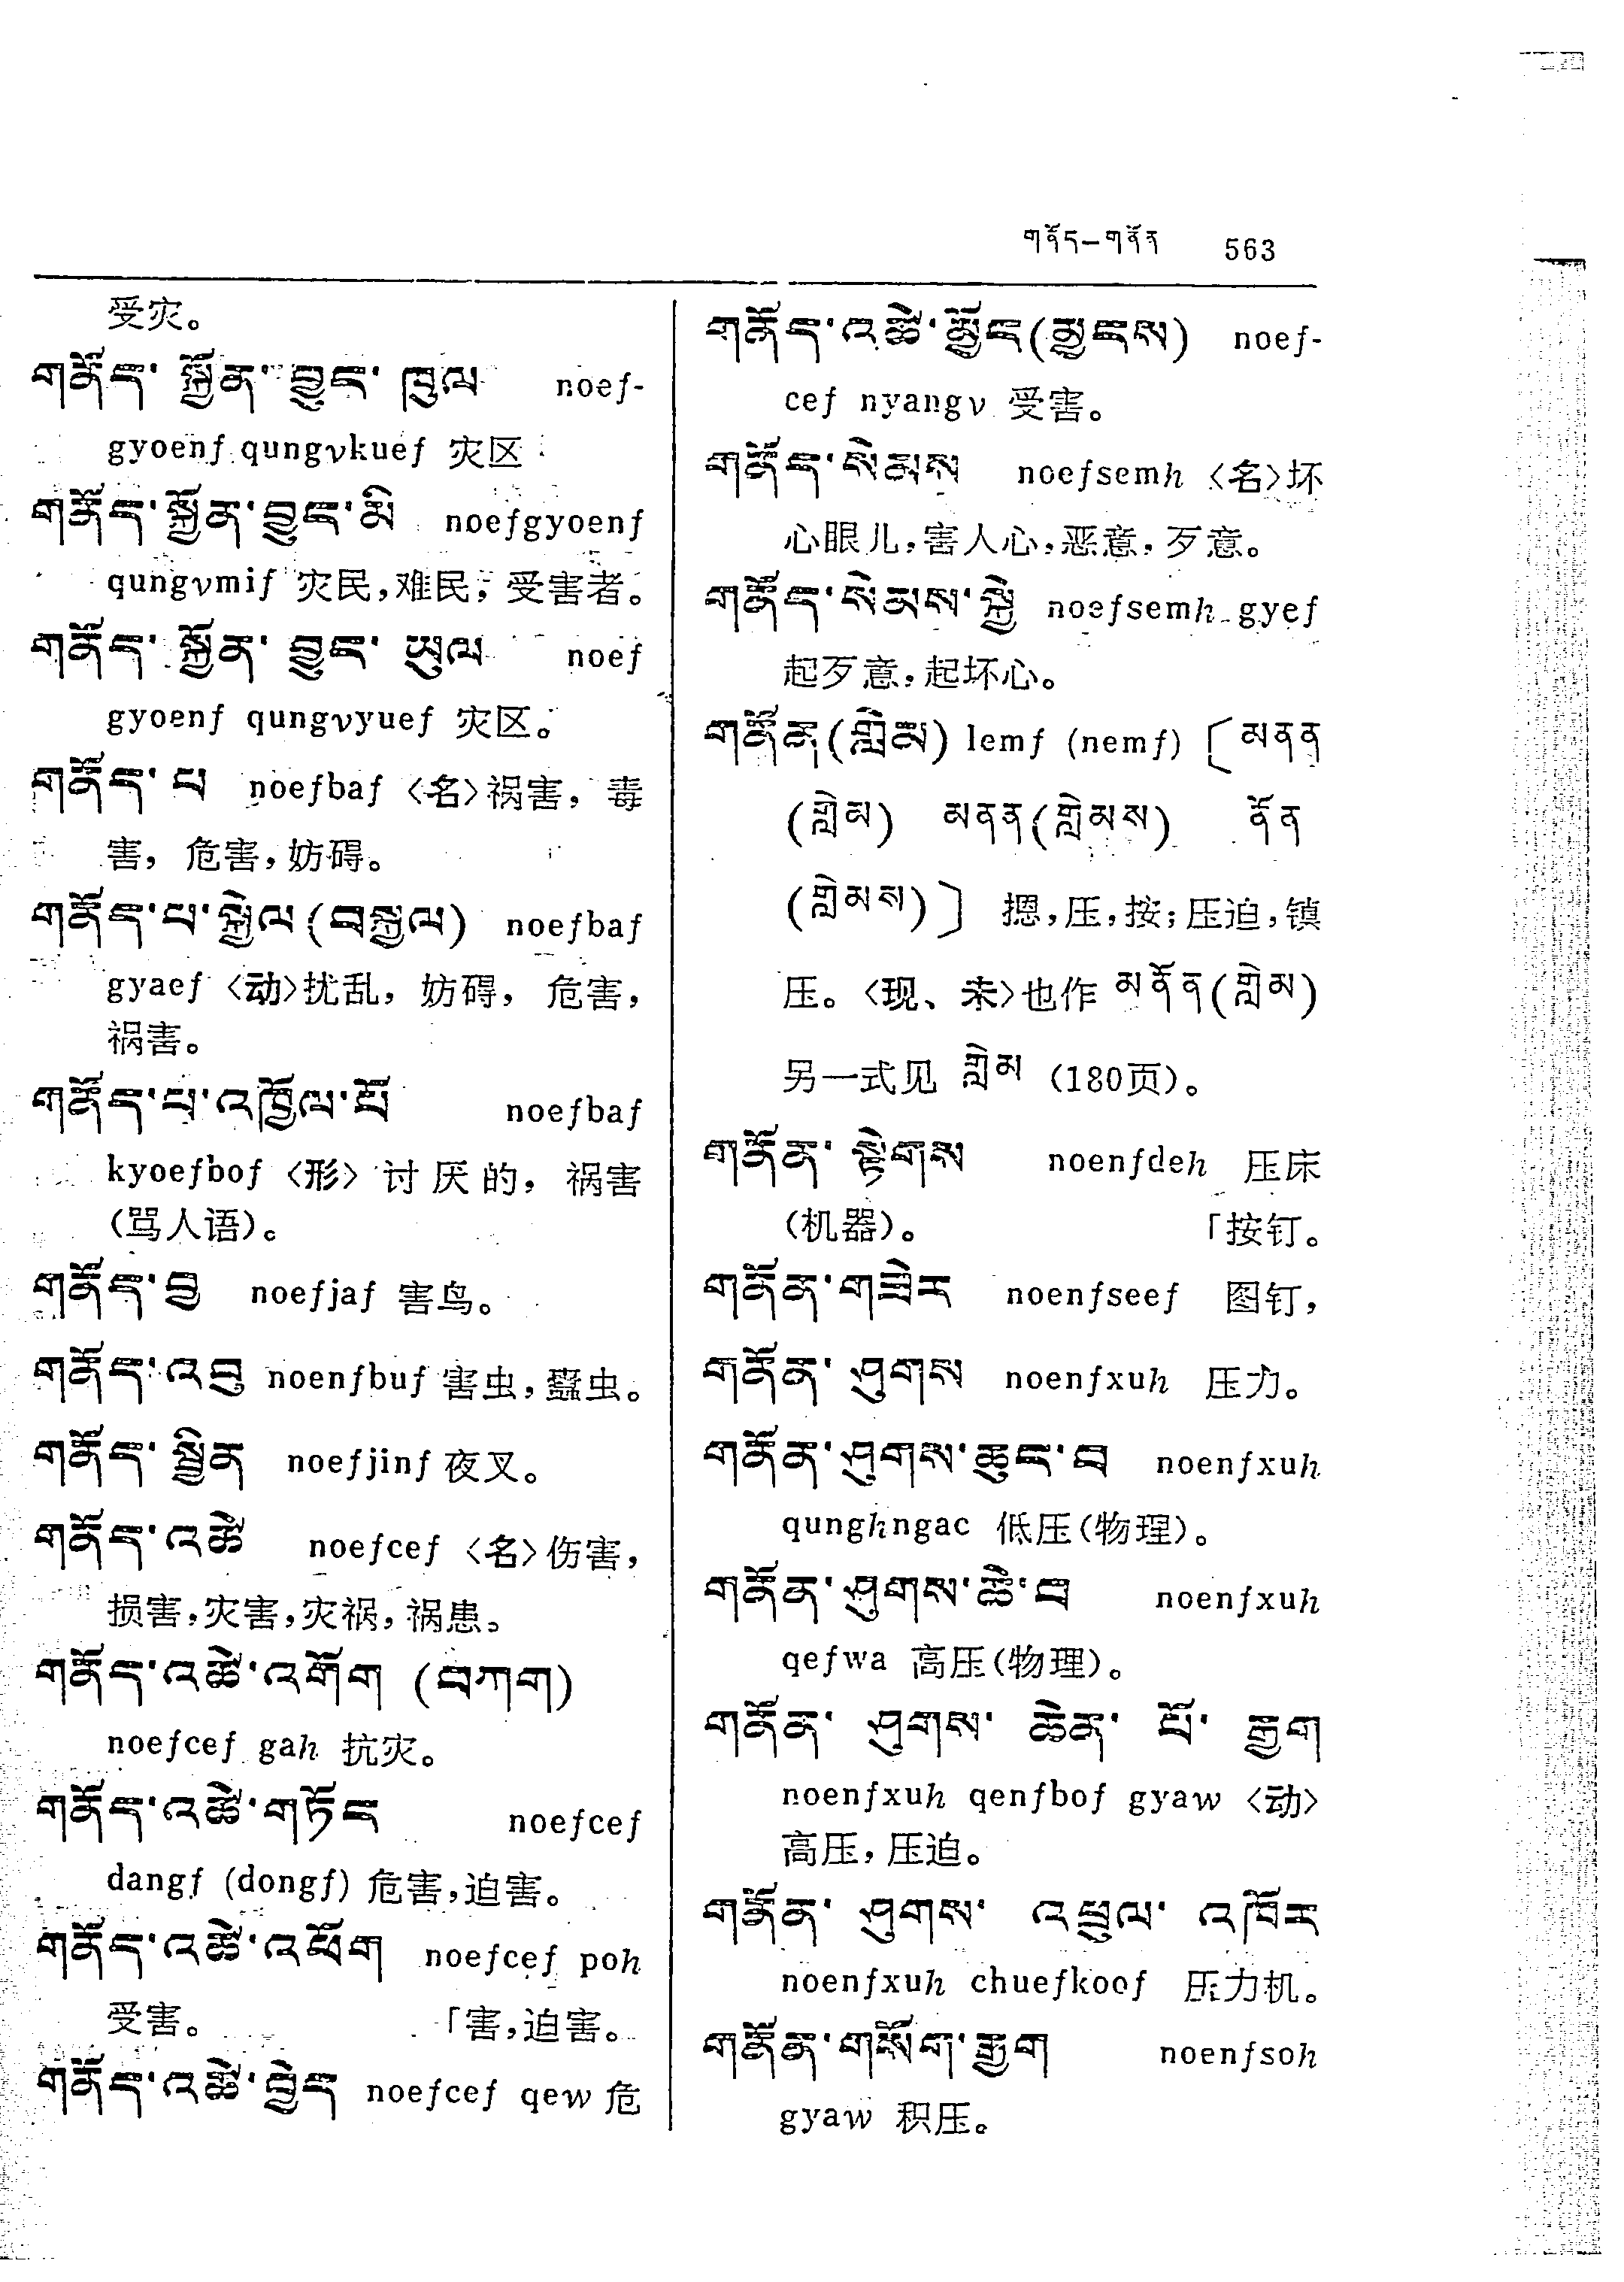 གནོད—གནོན 563
受灾。
གནོད་ སྐྱོན་ བྱུང་ ཁུལ noef-
gyoenf qungvkuef 灾区
གནོད་སྐྱོན་བྱུང་མི noefgyoenf
qungvmif 灾民,难民,受害者。
གནོད་ སྐྱོན་ བྱུང་ ཡུལ noef
gyoenf qungvyuef 灾区。
གནོད་ པ noefbaf〈名〉祸害,毒
害,危害,妨碍。
གནོད་པ་སྐྱེལ(བསྐྱལ) noefbaf
gyaef〈动〉扰乱,妨碍,危害,
祸害。
གནོད་པ་འཁྱོལ་པོ noefbaf
kyoefbof〈形〉讨厌的,祸害
(骂人语)。
གནོད་བྱ noefjaf 害鸟。
གནོད་འབུ noenfbuf 害虫,蠚虫。
གནོད་ སྦྱིན noefjinf 夜叉。
གནོད་འཚེ noefcef〈名〉伤害,
损害,灾害,灾祸,祸患。
གནོད་འཚེ་འགོག (བཀག)
noefcef gah 抗灾。
གནོད་འཚེ་གཏོང noefcef
dangf (dongf) 危害,迫害。
གནོད་འཚེ་འཕོག noefcef poh
受害。 「害,迫害。
གནོད་འཚེ་བྱེད noefcef qew 危
གནོད་འཚེ་མྱོང(མྱངས) noef-
cef nyangv 受害。
གནོད་སེམས noefsemh〈名〉坏
心眼儿,害人心,恶意,歹意。
གནོད་སེམས་སྐྱེ noefsemh gyef
起歹意,起坏心。
གནོན(གླེམ) lemf (nemf)〔མནན
(གླེམ) མནན(གླེམས) ནོན
(གླེམས)〕 摁,压,按;压迫,镇
压。〈现、未〉也作 མནོན(གླེམ)
另一式见 གླེམ (180页)。
གནོན་ སྟེགས noenfdeh 压床
(机器)。 「按钉。
གནོན་གཟེར noenfseef 图钉,
གནོན་ ཤུགས noenfxuh 压力。
གནོན་ཤུགས་ཆུང་བ noenfxuh
qunghngac 低压(物理)。
གནོན་ཤུགས་ཆེ་བ noenfxuh
qefwa 高压(物理)。
གནོན་ ཤུགས་ ཆེན་ པོ་ རྒྱག
noenfxuh qenfbof gyaw〈动〉
高压,压迫。
གནོན་ ཤུགས་ འཕྲུལ་ འཁོར
noenfxuh chuefkoof 压力机。
གནོན་གསོག་རྒྱག noenfsoh
gyaw 积压。